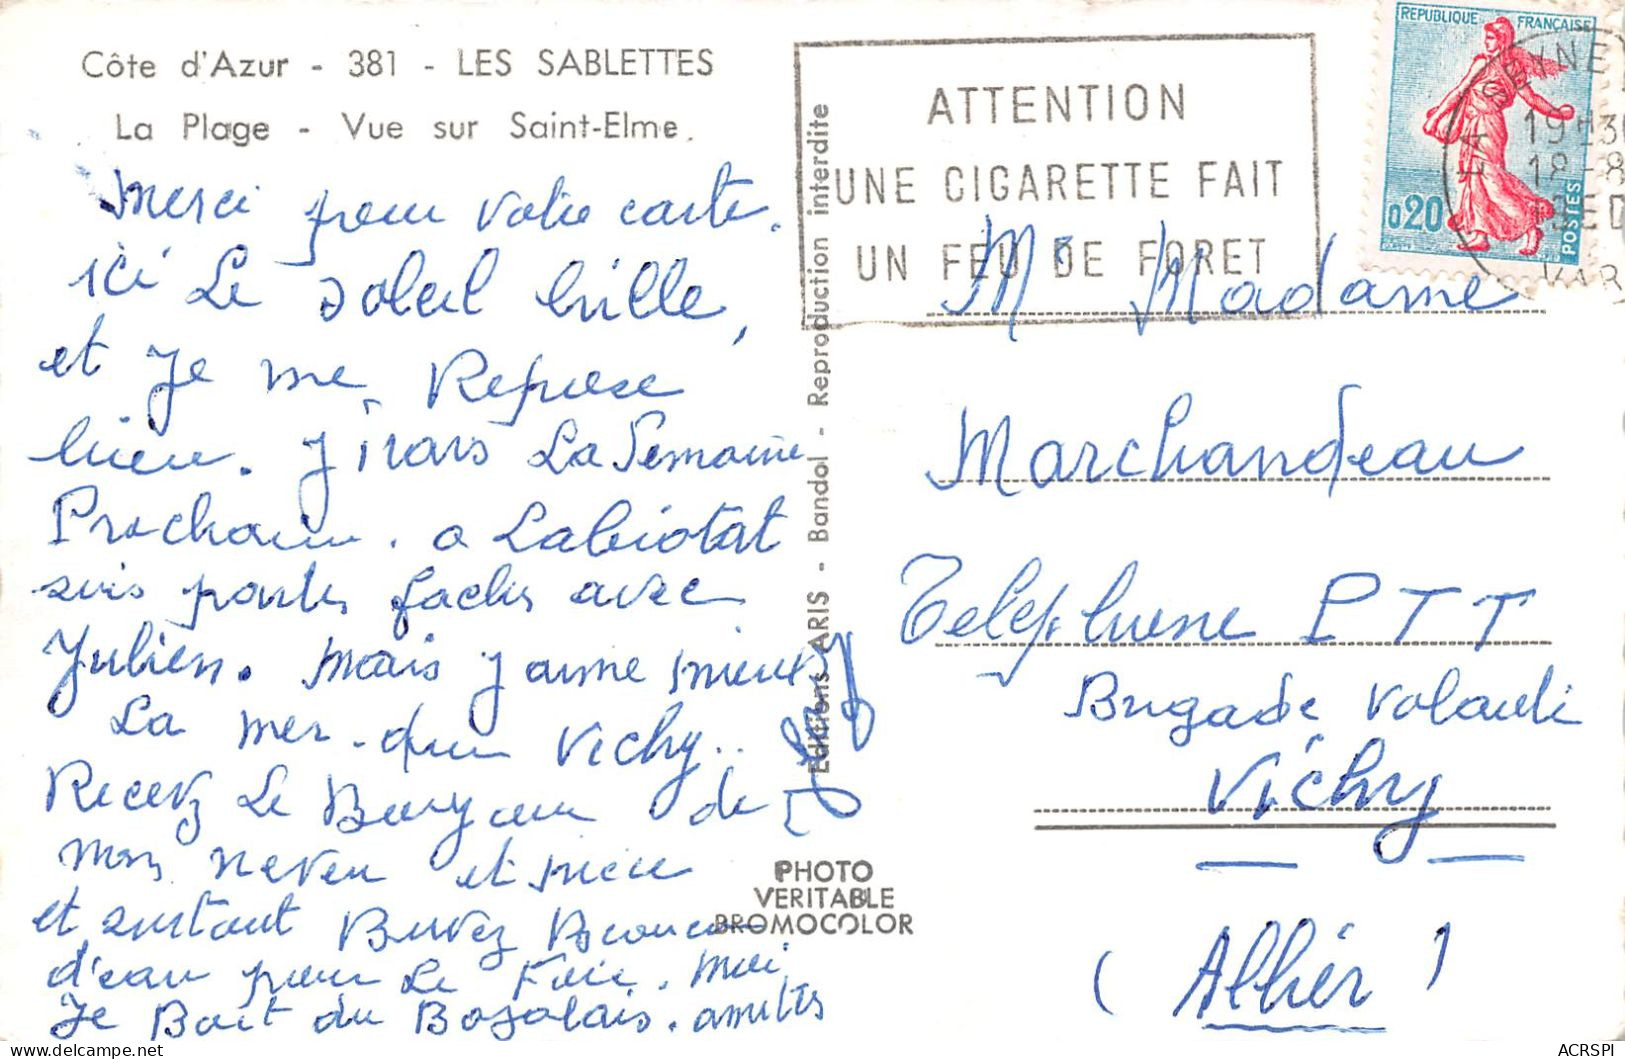 Côte d'Azur - 381 - LES SABLETTES
La Plage - Vue sur Saint-Elme.
Merci pour votre carte.
ici Le soleil brille,
et Je me Repose
bien. J irais La Semaine
Prochaine. a Labiotat
suis partes faches avec
Julien. Mais J aime mieux
La mer. que Vichy..
Recevez Le Bonjour de
mon neveu et nièce
et surtout Buvez Beaucou
d'eau pour Le Foie. Moi
Je Boit du Bojolais. amities
Editions ARIS - Bandol - Reproduction interdite
PHOTO
VERITABLE
BROMOCOLOR
ATTENTION
UNE CIGARETTE FAIT
UN FEU DE FORET
REPUBLIQUE FRANÇAISE
0,20
POSTES
LA SEYNE
19H30
18-8
VAR
Mr Madame
Marchandeau
Telephone PTT
Brigade Volante
Vichy
(Allier)
ACRSPI